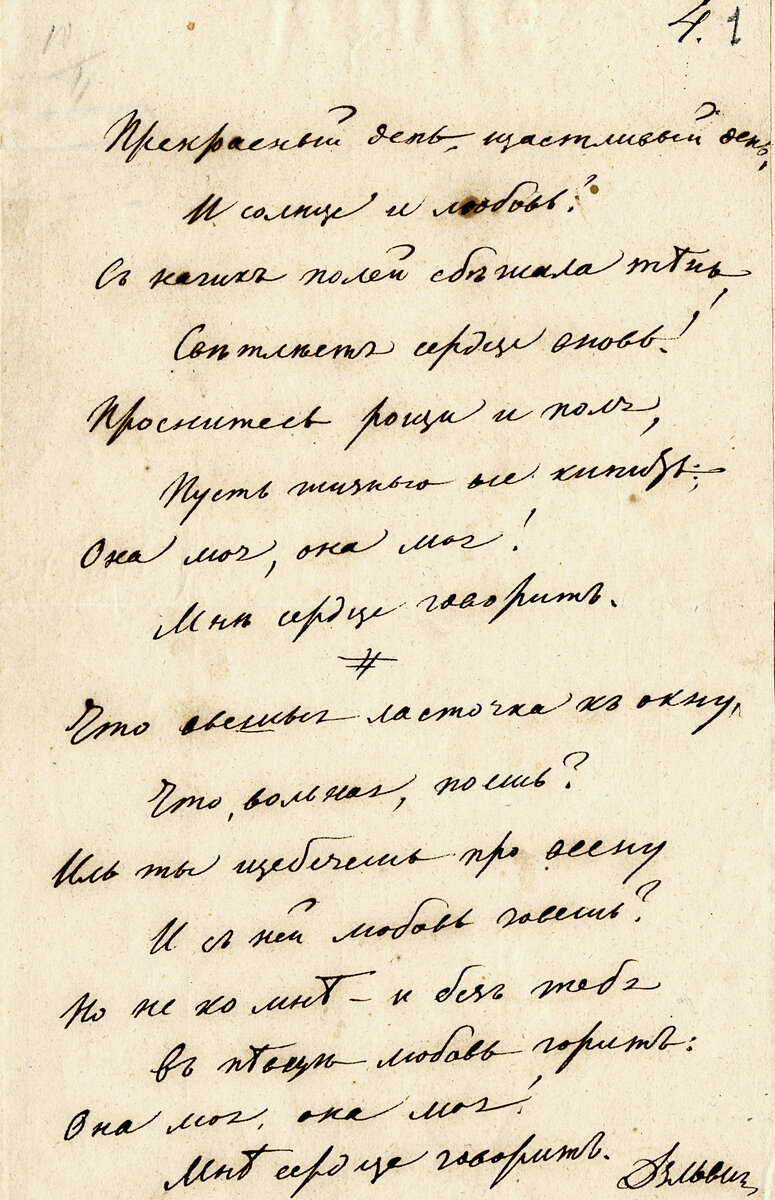 4. 1
Прекрасный день, щастливый день,
И солнце и любовь!
Съ нагихъ полей сбѣжала тѣнь,
Свѣтлѣетъ сердце вновь!
Проснитесь рощи и поля,
Пусть жизнью все кипитъ:
Она моя, она моя!
Мнѣ сердце говоритъ.
Что вьешься ласточка къ окну,
Что, вольная, поешь?
Иль ты щебечешь про весну
И съ ней любовь зовешь?
Но не ко мнѣ – и безъ тебя
Въ пѣвцѣ любовь горитъ:
Она моя, она моя!
Мнѣ сердце говоритъ.
Дельвиг